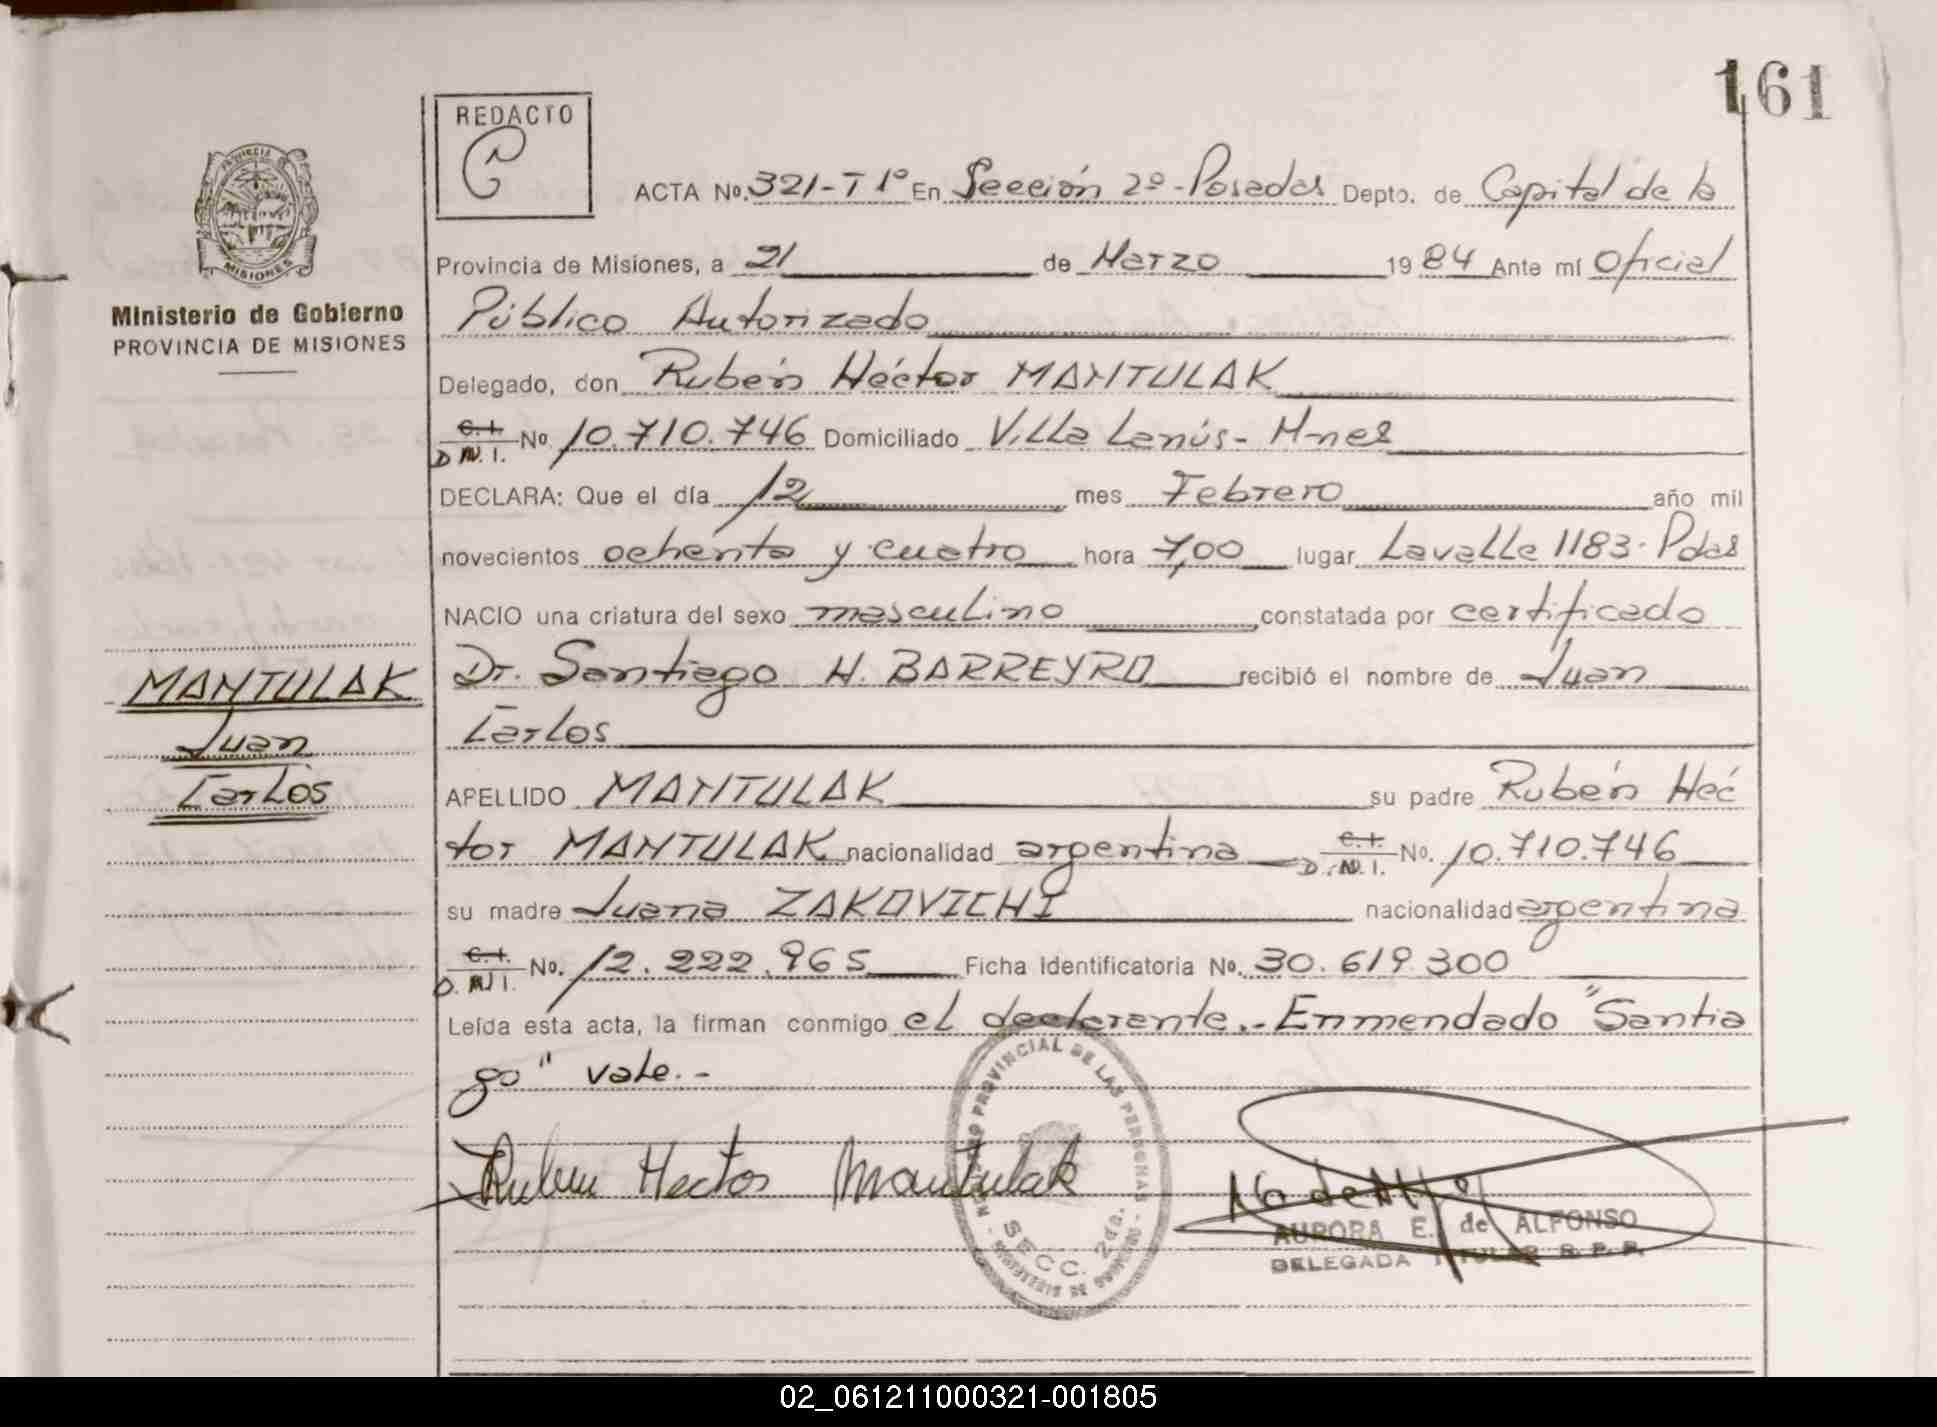 161
REDACTO
C
ACTA No. 321-T1º En Sección 2º - Posadas Depto. de Capital de la
PROVINCIA
MISIONES
Provincia de Misiones, a 21 de Marzo 1984 Ante mí Oficial
Ministerio de Gobierno
PROVINCIA DE MISIONES
Público Autorizado
Delegado, don Rubén Héctor MANTULAK
C.I.
D.N.I. No. 10.710.746 Domiciliado Villa Lanús - M-nes
DECLARA: Que el día 12 mes Febrero año mil
novecientos ochenta y cuatro hora 7,00 lugar Lavalle 1183 - Pdas
NACIO una criatura del sexo masculino constatada por certificado
Dr. Santiago H. BARREYRO recibió el nombre de Juan
Carlos
MANTULAK
Juan
Carlos
APELLIDO MANTULAK su padre Rubén Héc
tor MANTULAK nacionalidad argentina C.I. D.N.I. No. 10.710.746
su madre Juana ZAKOVICHI nacionalidad argentina
C.I.
D.N.I. No. 12.222.965 Ficha Identificatoria No. 30.619.300
Leída esta acta, la firman conmigo el declarante.- Enmendado "Santia
go" vale.-
Ruben Hector Mantulak
REGISTRO PROVINCIAL DE LAS PERSONAS
SECC. 2da.
MINISTERIO DE GOBIERNO
AURORA E. de ALFONSO
DELEGADA TITULAR R. P. P.
02_061211000321-001805